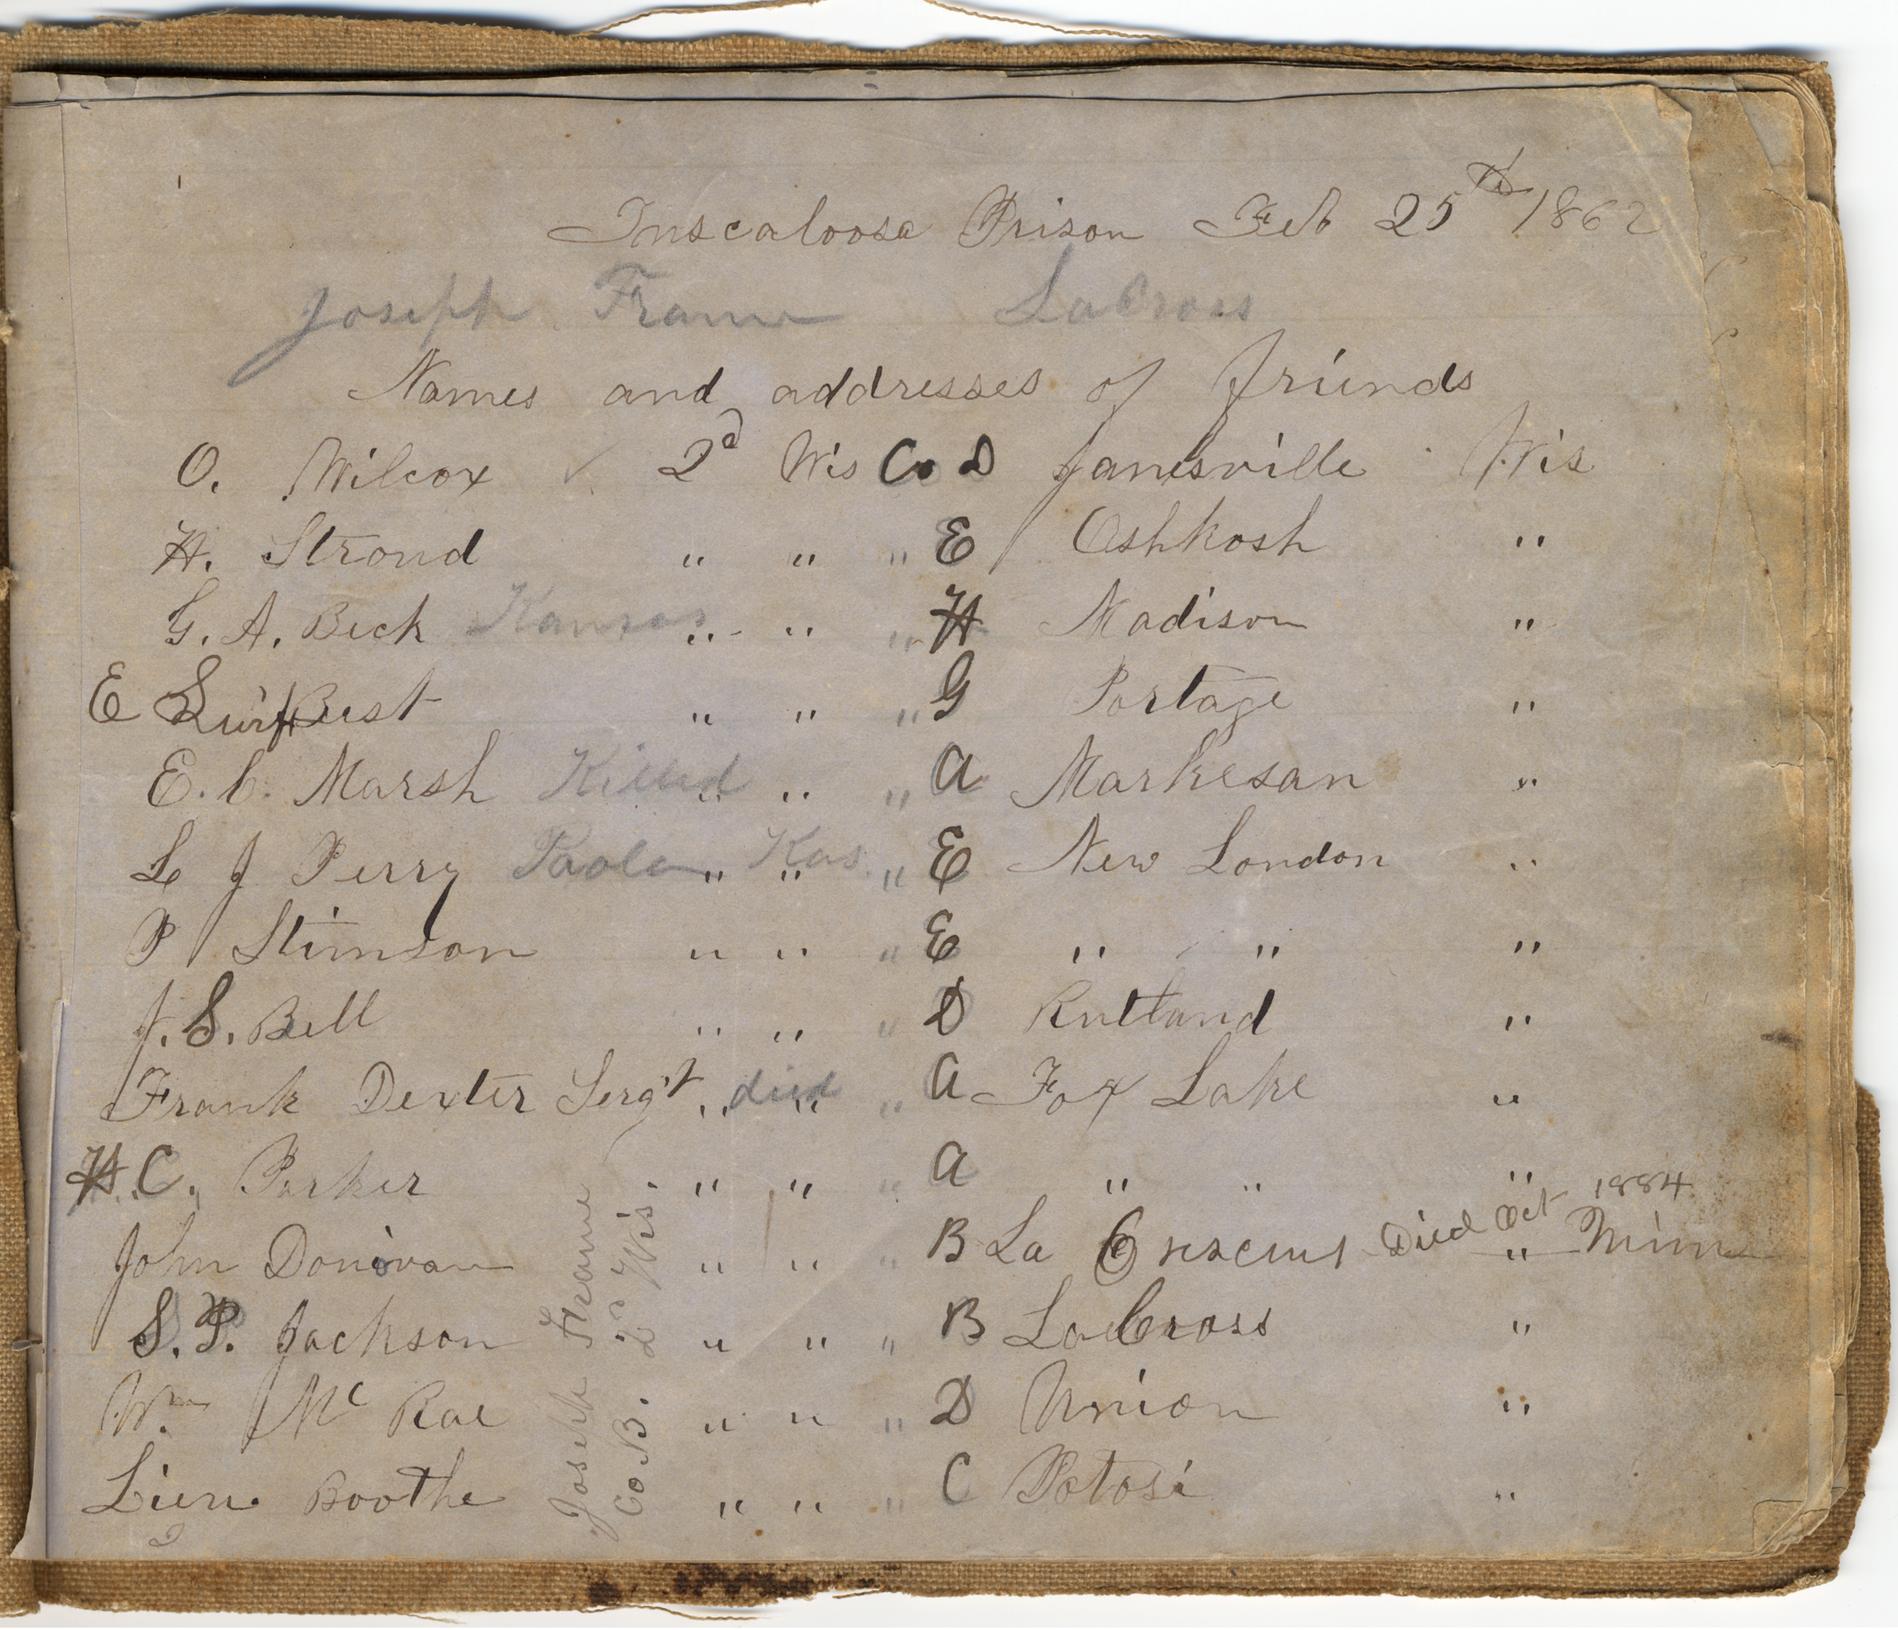 Tuscaloosa Prison Feb 25th 1862
Joseph Frame LaCross
Names and addresses of friends
O. Wilcox 2d Wis Co D Janesville Wis
H. Stroud " " " E Oshkosh "
G. A. Beck Kansas " " " H Madison "
E " " " G Portage "
E. C. Marsh Killed " " " A Markesan "
L J Perry Paola Kas. " " " E New London "
P Stimson " " " E " " "
J. S. Bell " " " D Rutland "
Frank Dexter Serg't died " " " A Fox Lake "
H. C. Parker " " " A " " "
John Donovan " " " B La Crescent Died Oct 1884 " Minn
S. P. Jackson " " " B LaCross "
Wm Mc Rae " " " D Union "
Lieu. Boothe " " " C Potosi "
2
Joseph Frame
Co. B. 2d Wis.